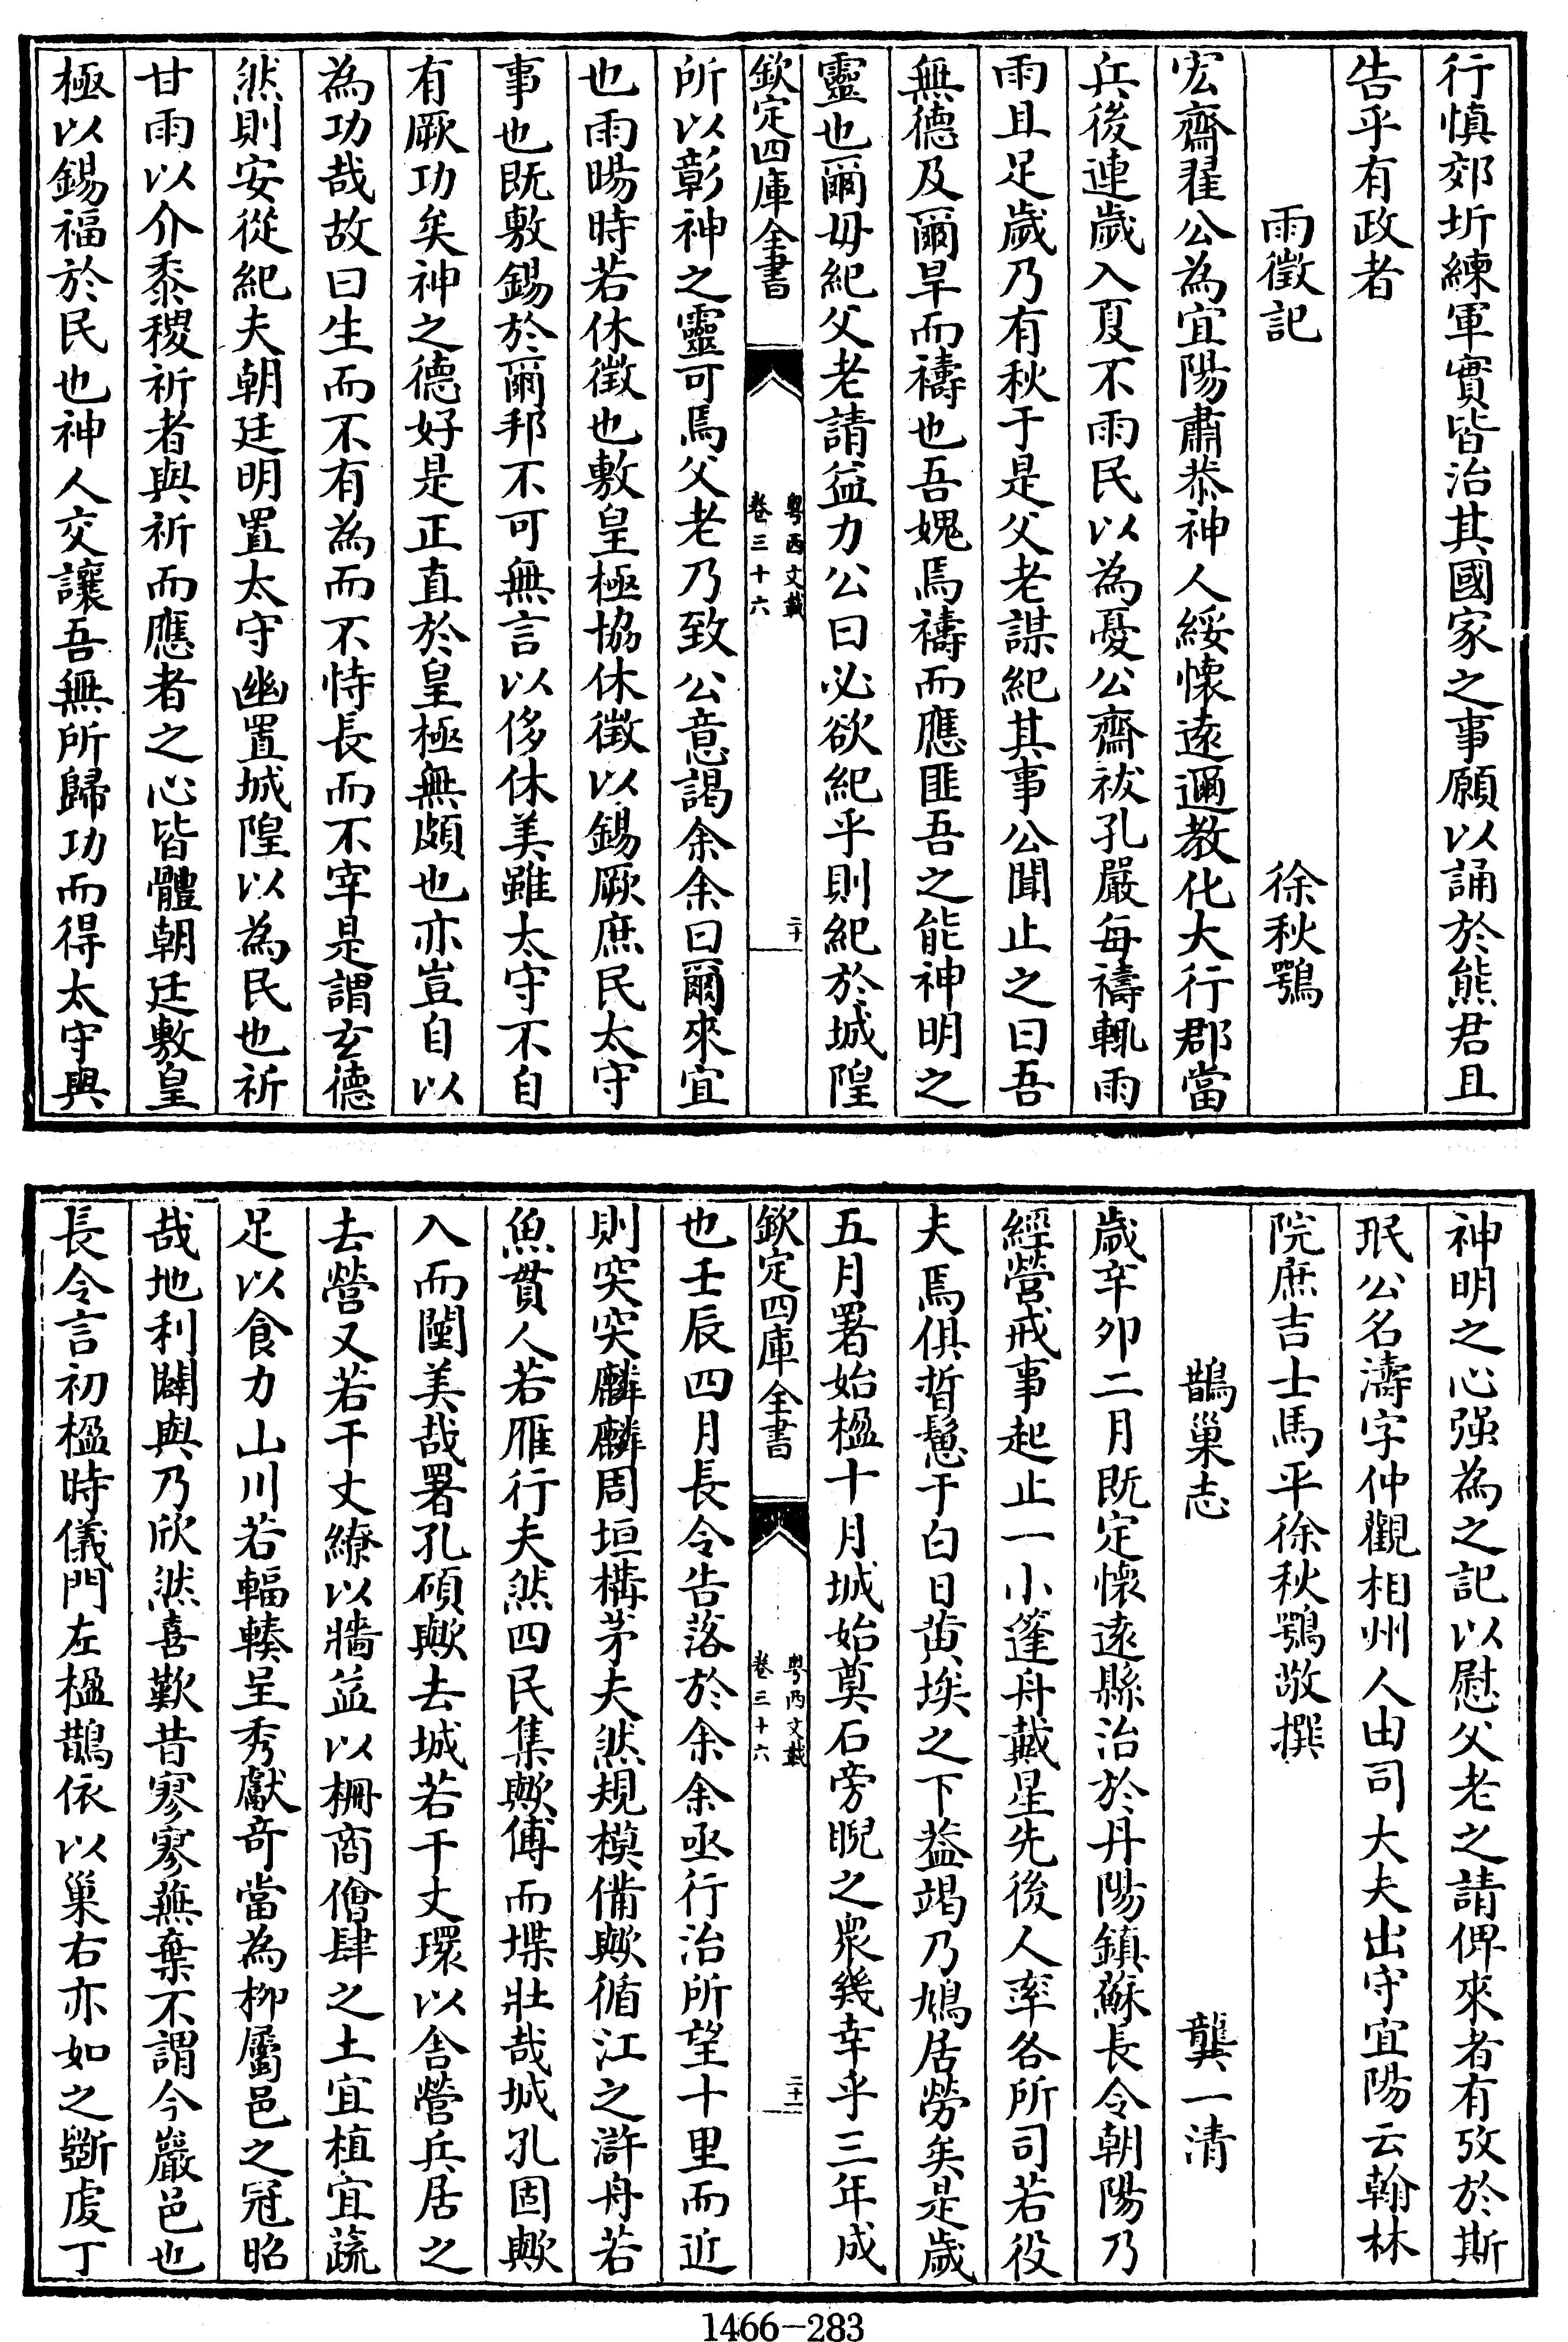 行慎郊圻練軍實皆治其國家之事願以誦於熊君且
告乎有政者
雨徵記　徐秋鶚
宏齋翟公為宜陽肅恭神人綏懷遠邇教化大行郡當
兵後連歲入夏不雨民以為憂公齋祓孔嚴每禱輒雨
雨且足歲乃有秋于是父老謀紀其事公聞止之曰吾
無德及爾旱而禱也吾媿焉禱而應匪吾之能神明之
靈也爾毋紀父老請益力公曰必欲紀乎則紀於城隍
欽定四庫全書
粤西文載
卷三十六
二十
所以彰神之靈可焉父老乃致公意謁余余曰爾來宜
也雨暘時若休徴也敷皇極協休徴以錫厥庶民太守
事也既敷錫於爾邦不可無言以侈休美雖太守不自
有厥功矣神之德好是正直於皇極無頗也亦豈自以
為功哉故曰生而不有為而不恃長而不宰是謂玄德
然則安從紀夫朝廷明置太守幽置城隍以為民也祈
甘雨以介黍稷祈者與祈而應者之心皆體朝廷敷皇
極以錫福於民也神人交讓吾無所歸功而得太守與
神明之心强為之記以慰父老之請俾來者有攷於斯
珉公名濤字仲觀相州人由司大夫出守宜陽云翰林
院庶吉士馬平徐秋鶚敬撰
鵲巢志　龔一清
歲辛卯二月既定懷遠縣治於丹陽鎮蘇長令朝陽乃
經營戒事起止一小篷舟戴星先後人率各所司若役
夫焉俱晳鬆于白日黄埃之下益竭乃鳩居勞矣是歲
五月署始楹十月城始奠石旁睨之衆幾幸乎三年成
欽定四庫全書
粤西文載
卷三十六
二十一
也壬辰四月長令告落於余余亟行治所望十里而近
則突突麟麟周垣構茅夫然規模備歟循江之滸舟若
魚貫人若雁行夫然四民集歟傅而堞壯哉城孔固歟
入而闉美哉署孔碩歟去城若干丈環以舍營兵居之
去營又若干丈繚以牆益以柵商僧肆之土宜植宜蔬
足以食力山川若輻輳呈秀獻奇當為柳屬邑之冠昭
哉地利闢與乃欣然喜歎昔寥寥蕪棄不謂今巖邑也
長令言初楹時儀門左楹鵲依以巢右亦如之斲虔丁
1466-283